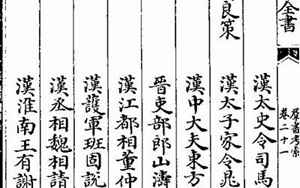 全書
羣書考索
卷二十一
漢太史令司馬
漢太子家令晁
漢中大夫東方
晉吏部郎山濤
漢江都相董仲
漢護軍班固說
漢丞相魏相請
漢淮南王有謝
良策